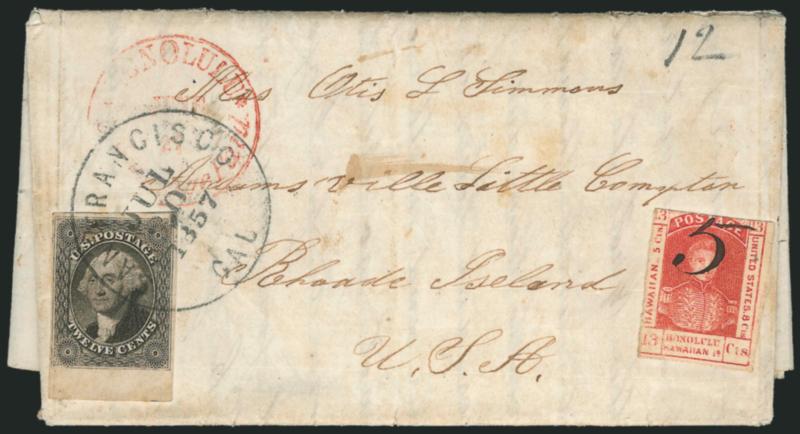 12
HONOLULU
Mrs Otis L Simmons
Adamsville Little Compton
Rhoade Iseland
U.S.A.
FRANCISCO
JUL
20
1857
CAL
U.S. POSTAGE
TWELVE CENTS
POSTAGE
5
13
13
HAWAIIAN. 5 Cts
UNITED STATES. 8 Cts
13
HONOLULU
HAWAIIAN Is.
Cts